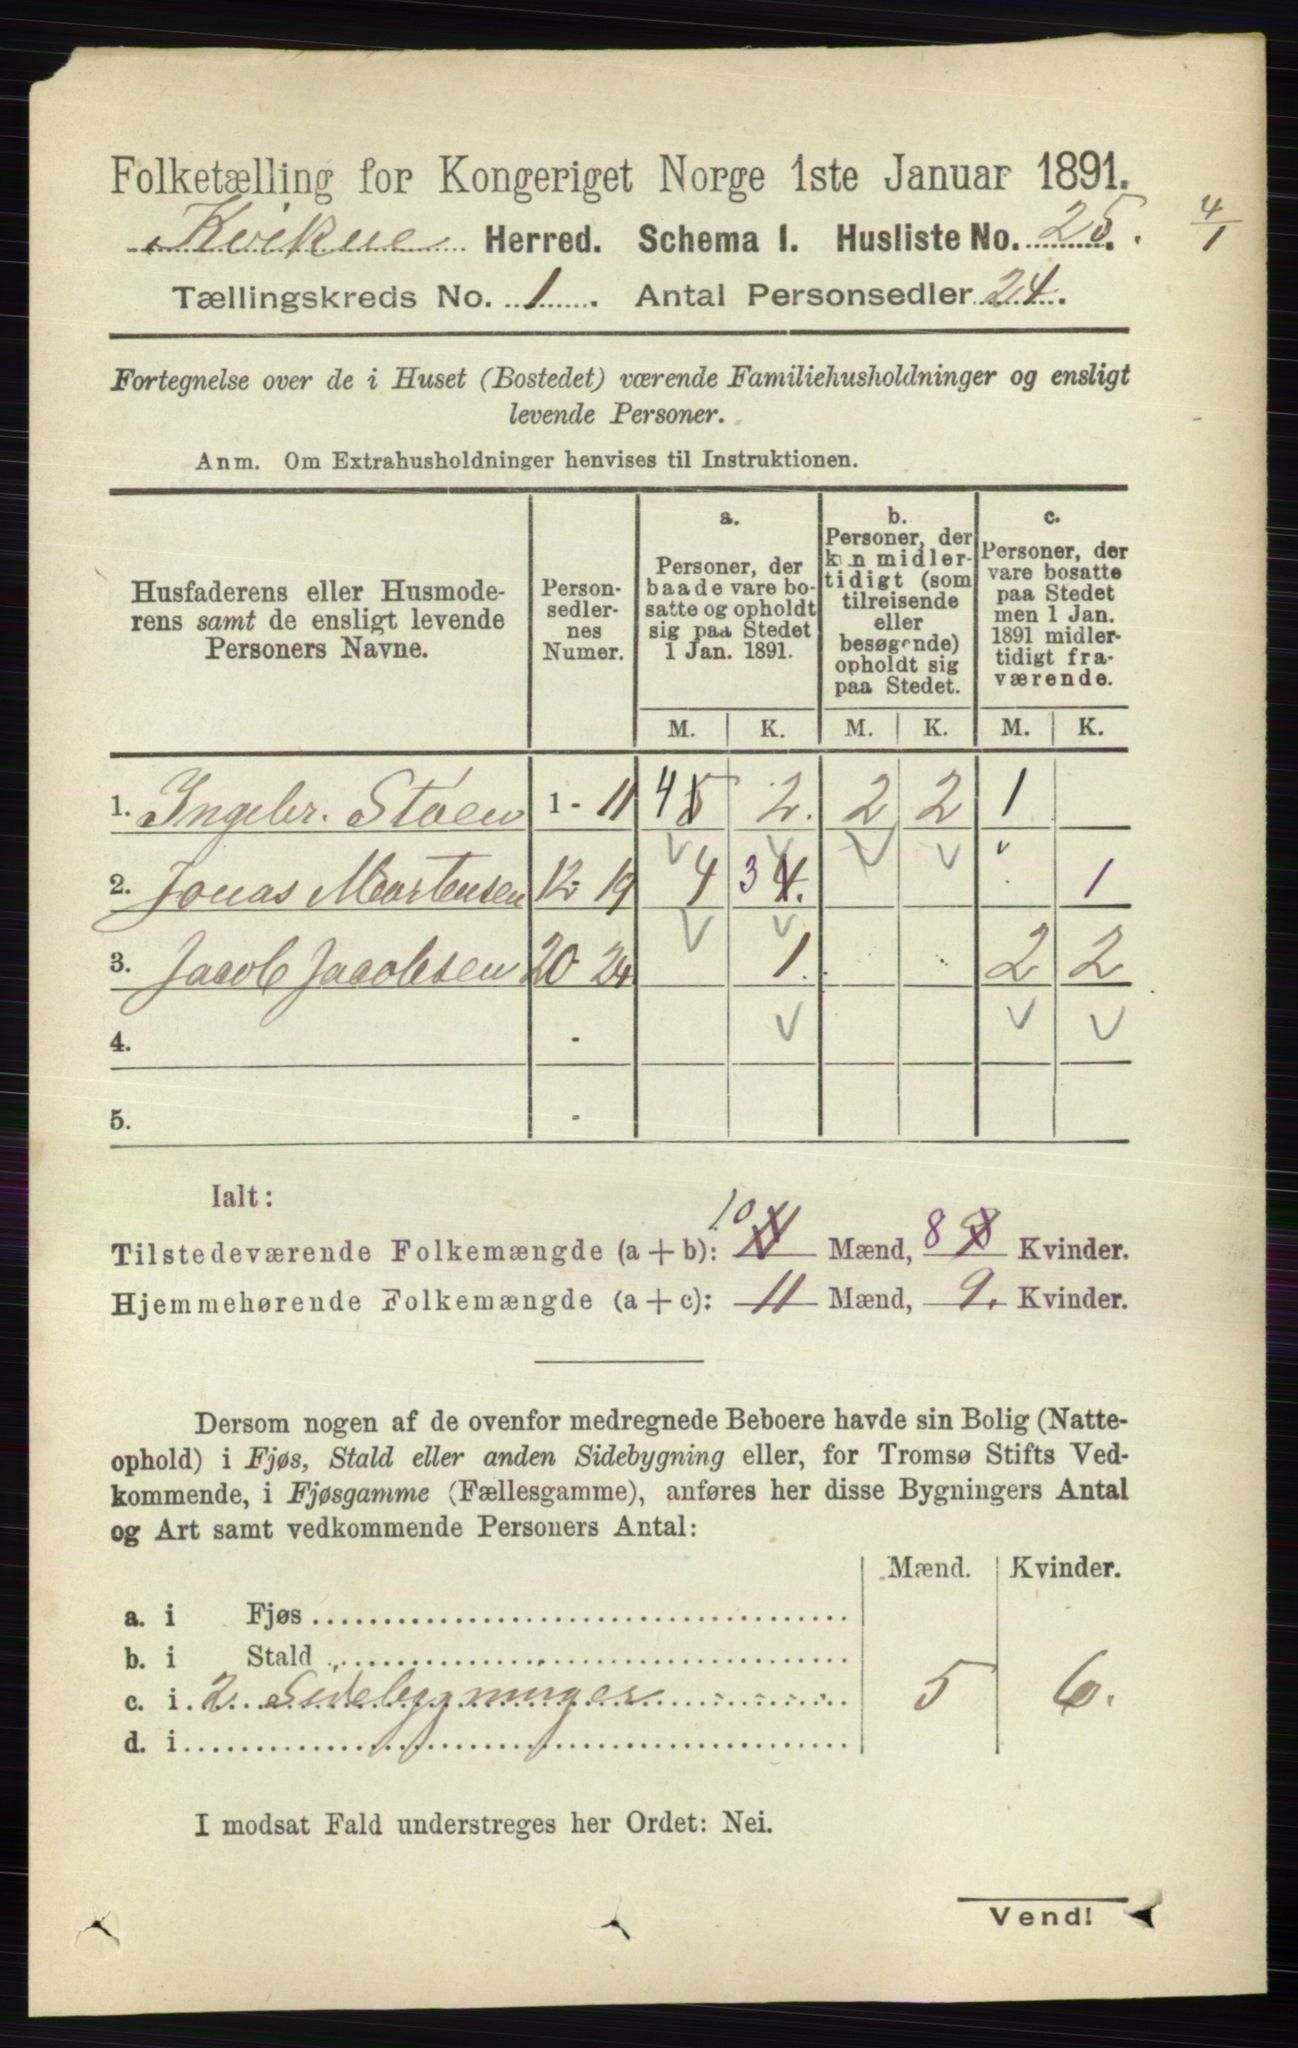 Folketælling for Kongeriget Norge 1ste Januar 1891.
Kvikne Herred. Schema I. Husliste No. 25.
4/1
Tællingskreds No. 1. Antal Personsedler 24.
Fortegnelse over de i Huset (Bostedet) værende Familiehusholdninger og ensligt
levende Personer.
Anm. Om Extrahusholdninger henvises til Instruktionen.
Husfaderens eller Husmode-
rens samt de ensligt levende
Personers Navne.
Person-
sedler-
nes
Numer.
a.
Personer, der
baade vare bo-
satte og opholdt
sig paa Stedet
1 Jan. 1891.
b.
Personer, der
kun midler-
tidigt (som
tilreisende
eller
besøgende)
opholdt sig
paa Stedet.
c.
Personer, der
vare bosatte
paa Stedet
men 1 Jan.
1891 midler-
tidigt fra-
værende.
M. K. M. K. M. K.
1. Ingebr. Støen 1 - 11 4 5 2. 2 2 1
2. Jonas Mortensen 12 - 19 4 3 4. 1
3. Jacob Jacobsen 20 24 1. 2 2
4. -
5. -
Ialt:
Tilstedeværende Folkemængde (a + b): 10 11 Mænd, 8 9 Kvinder.
Hjemmehørende Folkemængde (a + c): 11 Mænd, 9. Kvinder.
Dersom nogen af de ovenfor medregnede Beboere havde sin Bolig (Natte-
ophold) i Fjøs, Stald eller anden Sidebygning eller, for Tromsø Stifts Ved-
kommende, i Fjøsgamme (Fællesgamme), anføres her disse Bygningers Antal
og Art samt vedkommende Personers Antal:
Mænd. Kvinder.
a. i Fjøs
b. i Stald
c. i 2. Sidebygninger 5 6.
d. i
I modsat Fald understreges her Ordet: Nei.
Vend!